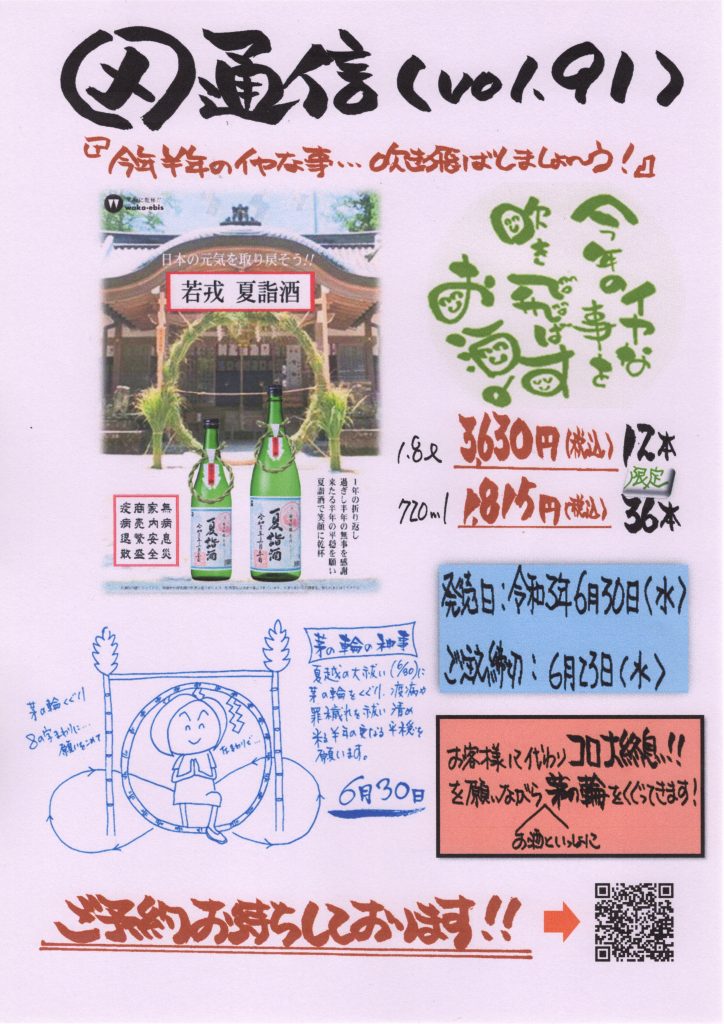 通信(vol.91)
『今年半年のイヤな事…吹き飛ばしましょ〜う!』
waka-ebis
日本の元気を取り戻そう!!
若戎 夏詣酒
1年の折り返し
過ぎし半年の無事を感謝
来たる半年の平穏を願い
夏詣酒で笑顔に乾杯
無病息災
家内安全
商売繁盛
疫病退散
夏詣酒
夏詣酒
今年の
イヤな
事を
吹き
飛ばす
お酒!
1.8ℓ 3,630円(税込) 12本
限定
720ml 1,815円(税込) 36本
発売日:令和3年6月30日(水)
ご注文締切:6月23日(水)
茅の輪の神事
夏越の大祓い(6/30)に
茅の輪をくぐり、疫病や
罪穢れを祓い清め
来る半年の更なる平穏を
願います。
6月30日
茅の輪くぐり
8の字まわりに…
願いをこめて
お客様に代わりコロナ終息!!
を願いながら茅の輪をくぐってきます!
お酒といっしょに
ご予約お待ちしております!!